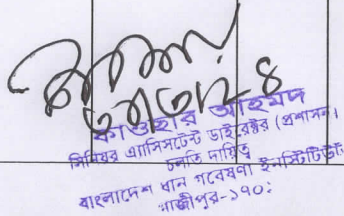 কাওছার আহমদ
সিনিয়র এ্যাসিসটেন্ট ডাইরেক্টর (প্রশাসন)
চলতি দায়িত্ব
বাংলাদেশ ধান গবেষণা ইনস্টিটিউট
গাজীপুর-১৭০১